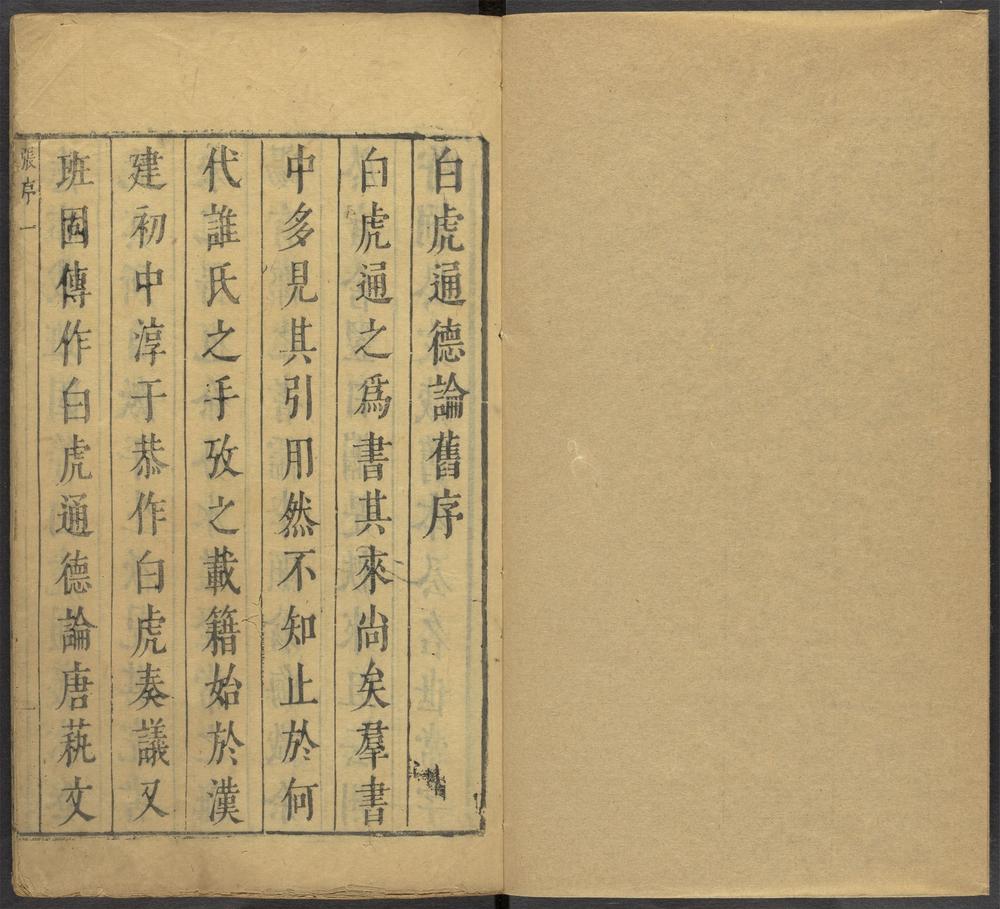 白虎通德論舊序
白虎通之爲書其來尚矣羣書
中多見其引用然不知止於何
代誰氏之手攷之載籍始於漢
建初中淳于恭作白虎奏議又
班固傳作白虎通德論唐蓺文
張序 一